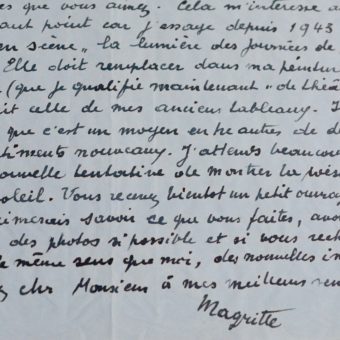 es que vous aimez. Cela m'intéresse a
aut point car j'essaye depuis 1943
en scène" la lumière des journées de
Elle doit remplacer dans ma peintur
(que je qualifie maintenant "de théâ
celle de mes anciens tableaux. J
que c'est un moyen entre autres de d
timents nouveaux. J'attends beaucou
ouvelle tentative de montrer la
soleil. Vous recevrez bientôt un petit ouvrag
aimerais savoir ce que vous faites, avo
des photos si possible et si vous rech
le même sens que moi, des nouvelles in
cher Monsieur à mes meilleurs sen
Magritte